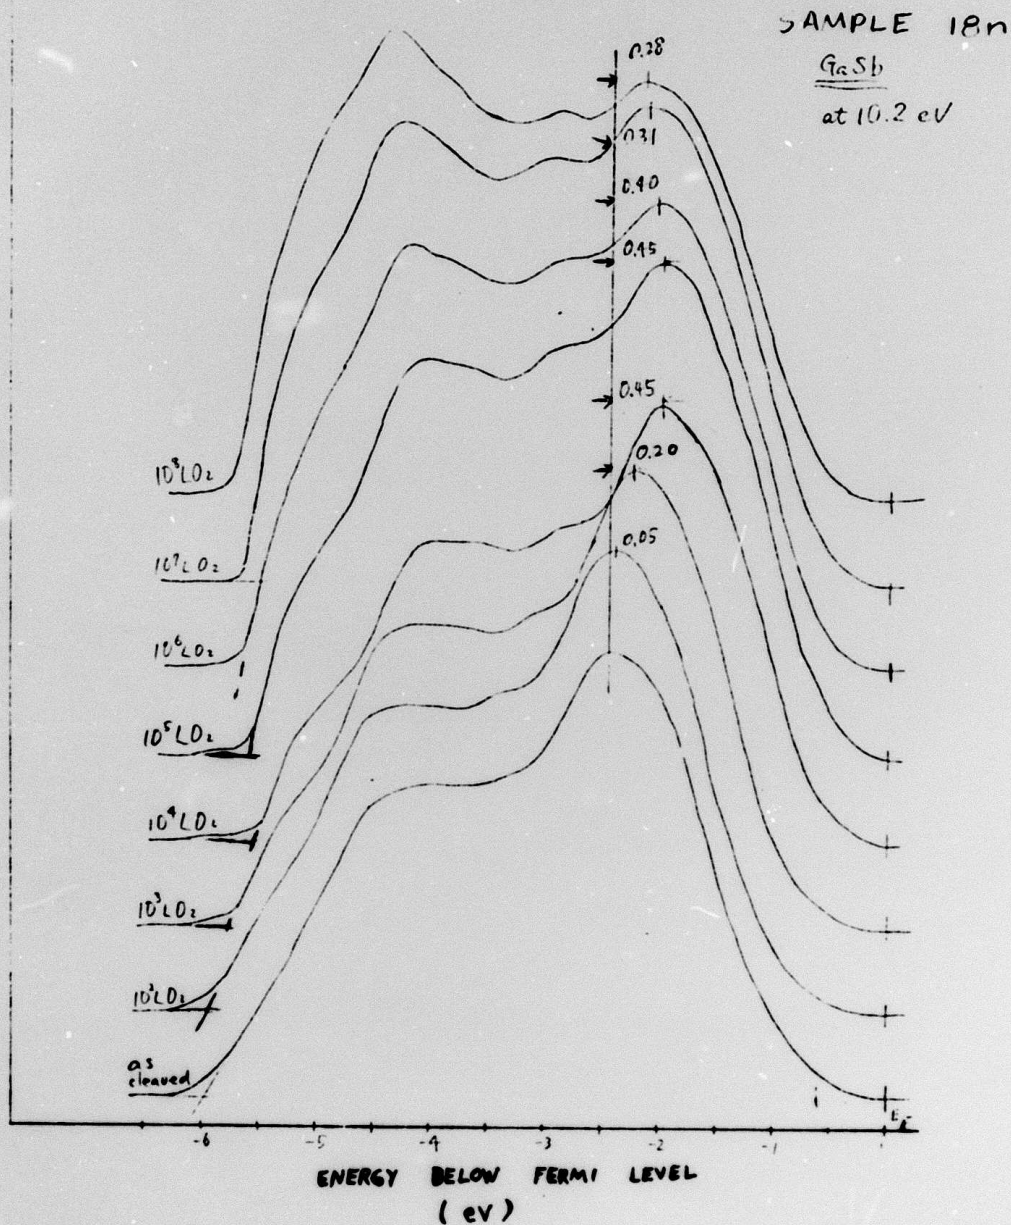 SAMPLE 18n
GaSb
at 10.2 eV
0.28
0.31
0.40
0.45
0.45
0.20
0.05
10⁸LO₂
10⁷LO₂
10⁶LO₂
10⁵LO₂
10⁴LO₂
10³LO₂
10²LO₂
as
cleaved
E_F
-6 -5 -4 -3 -2 -1
ENERGY BELOW FERMI LEVEL
(eV)